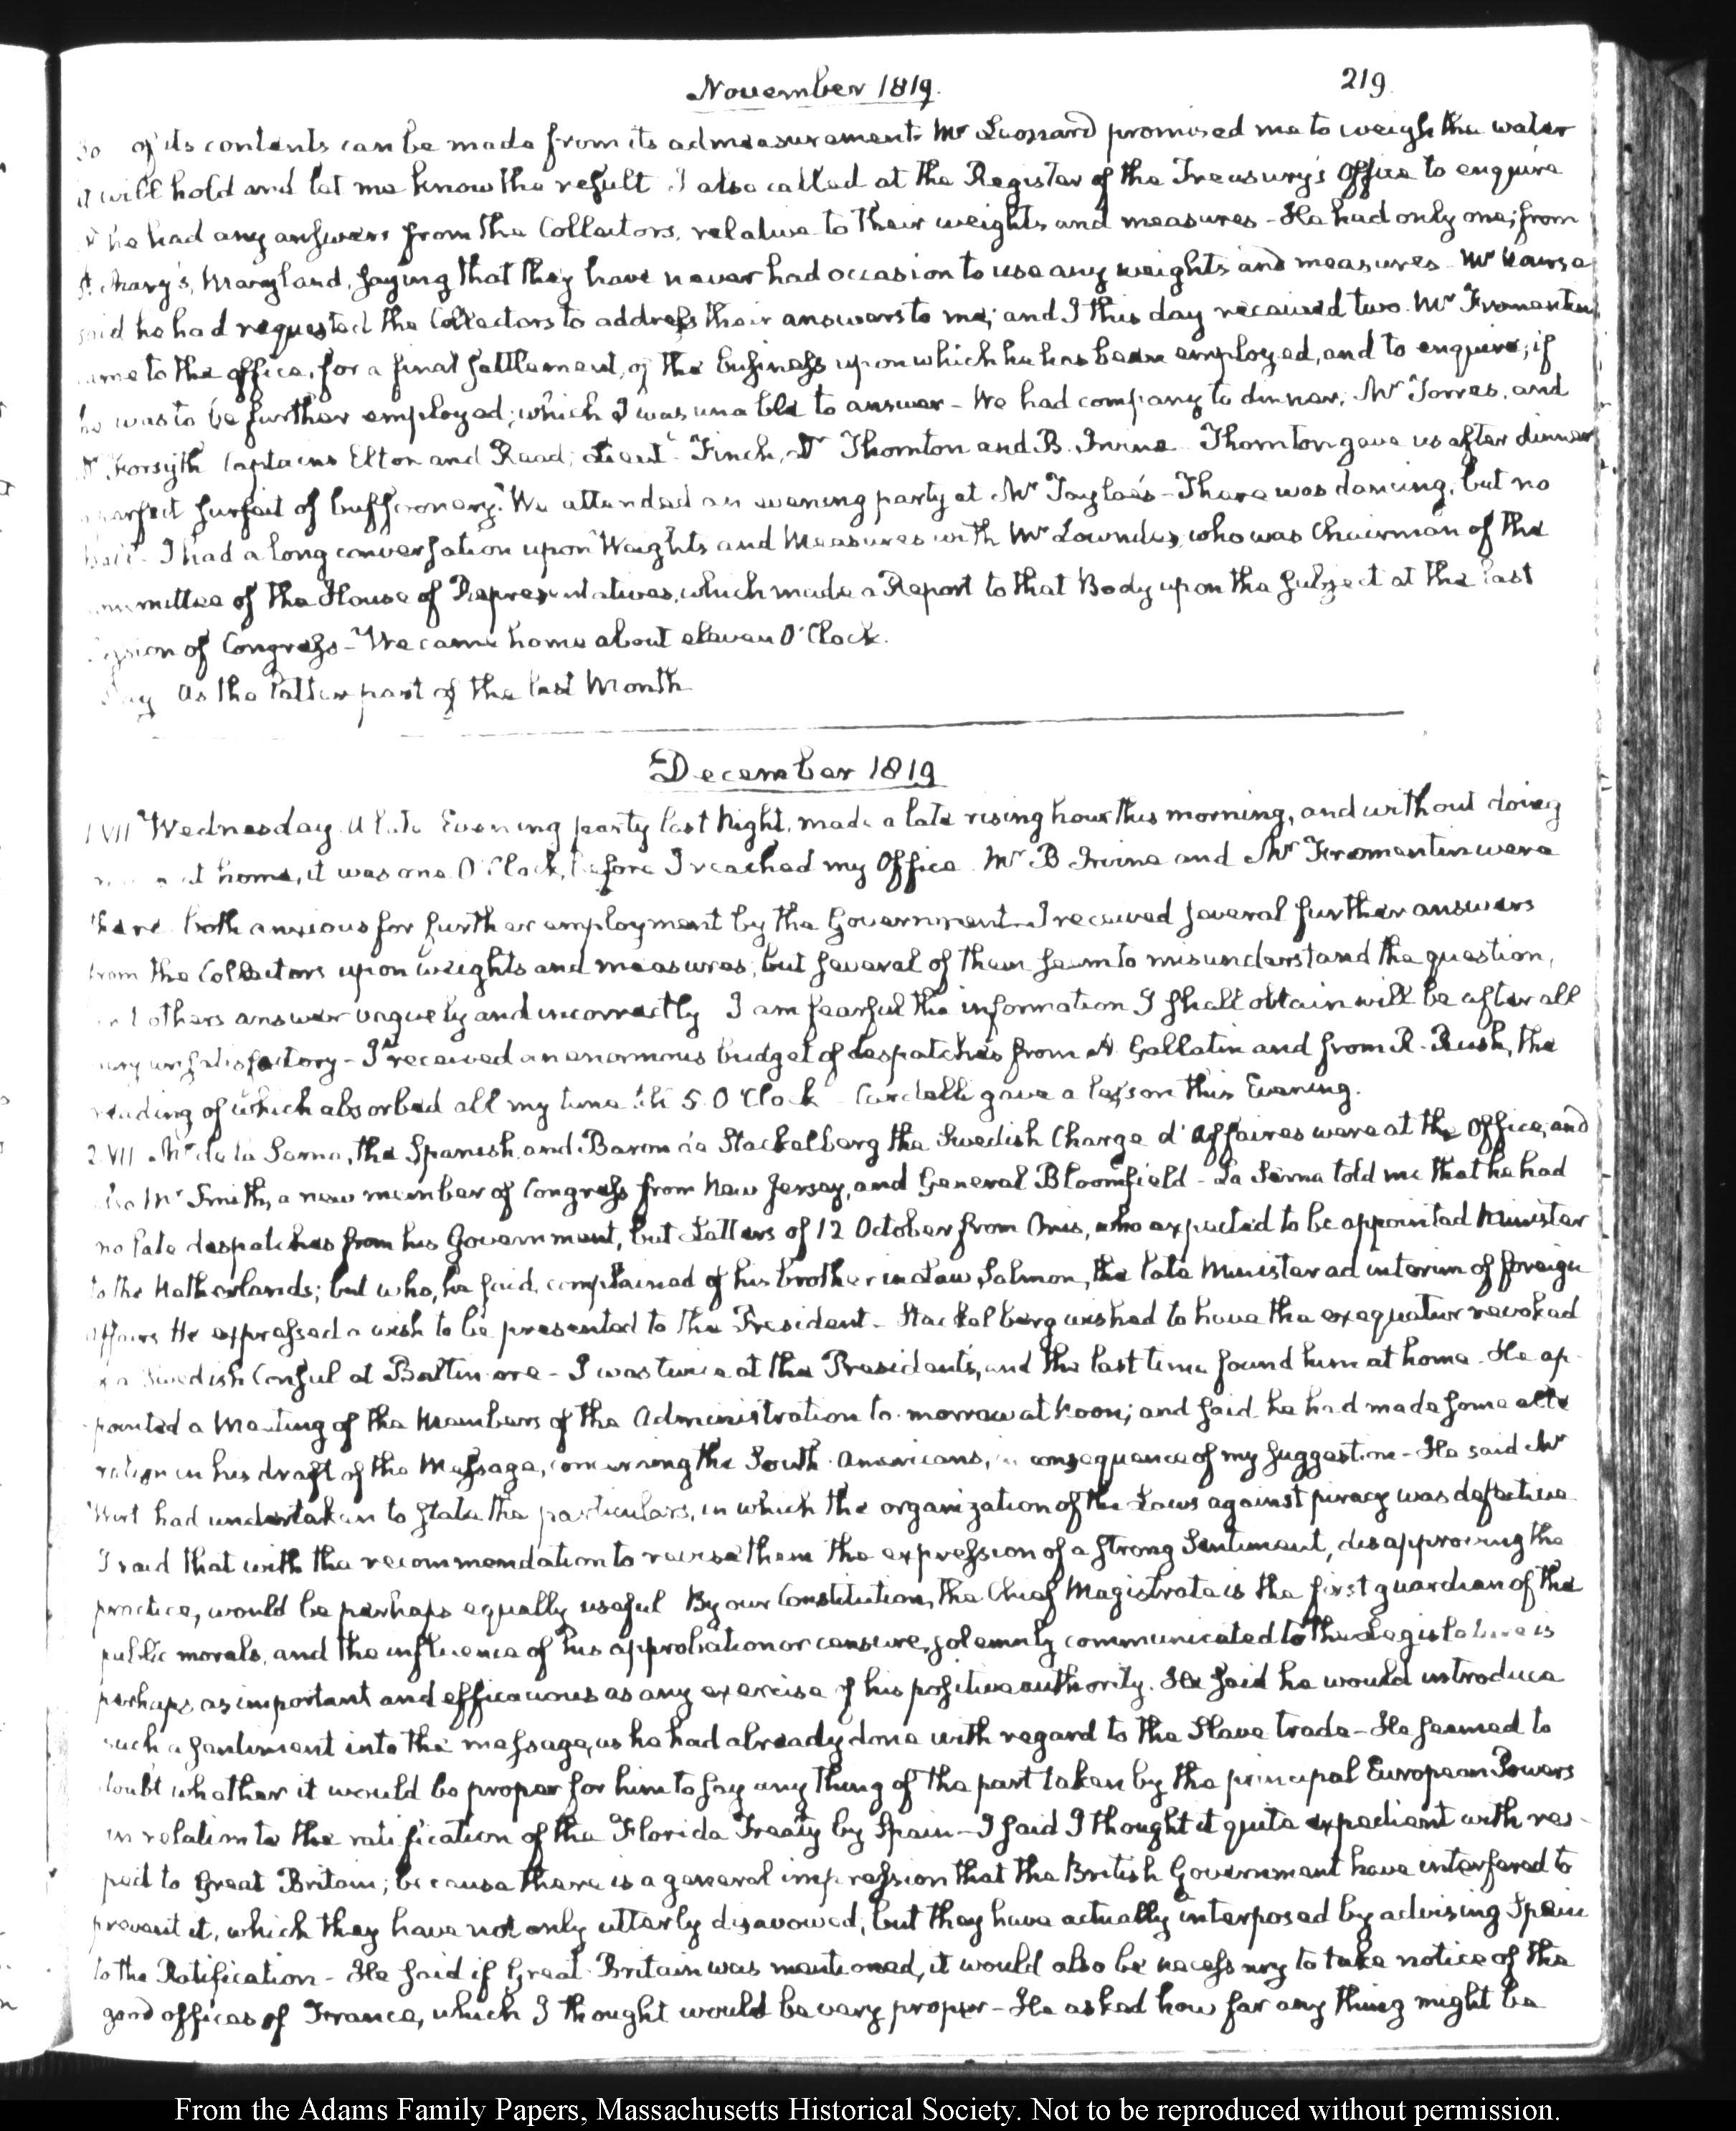 November 1819.
219
30 of its contents can be made from its admeasurement. Mr Leonard promised me to weigh the water
it will hold and let me know the result. I also called at the Register of the Treasury's Office to enquire
if he had any answers from the Collectors, relative to their weights and measures - He had only one; from
St. Mary's, Maryland, saying that they have never had occasion to use any weights and measures. Mr Nourse
said he had requested the Collectors to address their answers to me; and I this day received two. Mr Fromentin
came to the office, for a final settlement, of the business upon which he has been employed, and to enquire; if
he was to be further employed; which I was unable to answer - We had company to dinner, Mr Torres, and
Mr Forsyth Captains Elton and Read; Lieut. Finch, Dr Thornton and B. Irvine. Thornton gave us after dinner
a perfect surfeit of buffoonery. We attended an evening party at Mr Tayloe's - There was dancing, but no
ball - I had a long conversation upon Weights and Measures with Mr Lowndes, who was Chairman of the
Committee of the House of Representatives, which made a Report to that Body upon the subject at the last
Session of Congress - We came home about eleven O'Clock.
Day as the latter part of the last Month
December 1819
1 VII Wednesday. A late Evening party last Night, made a late rising hour this morning, and without doing
at home, it was one O'Clock, before I reached my Office. Mr B Irvine and Mr Fromentin were
there both anxious for further employment by the Government. I received several further answers
from the Collectors upon weights and measures; but several of them seem to misunderstand the question,
and others answer vaguely and incorrectly I am fearful the information I shall obtain will be after all
very unsatisfactory - I received an enormous budget of despatches from A. Gallatin and from R. Rush, the
reading of which absorbed all my time till 5. O'Clock - Cardelli gave a lesson this Evening.
2. VII Mr de la Serna, the Spanish, and Baron de Stackelberg the Swedish Charge d'Affaires were at the Office; and
also Mr Smith, a new member of Congress from New Jersey, and General Bloomfield - La Serna told me that he had
no late despatches from his Government, but Letters of 12 October from Onis, who expected to be appointed Minister
to the Netherlands; but who, he said, complained of his brother in Law, Salmon, the late Minister ad interim of foreign
affairs He expressed a wish to be presented to the President - Stackelberg wished to have the exequatur revoked
of a Swedish Consul at Baltimore - I was twice at the President's, and the last time found him at home. He ap-
pointed a Meeting of the Members of the Administration to-morrow at Noon; and said he had made some alte
ration in his draft of the Message, concerning the South-Americans, in consequence of my suggestion - He said Mr
Wirt had undertaken to state the particulars, in which the organization of the Laws against piracy was defective
I said that with the recommendation to revise them the expression of a strong Sentiment, disapproving the
practice, would be perhaps equally useful By our Constitution, the Chief Magistrate is the first guardian of the
public morals, and the influence of his approbation or censure, solemnly communicated to the Legislature is
perhaps as important and efficacious as any exercise of his positive authority. He said he would introduce
such a sentiment into the message, as he had already done with regard to the Slave trade - He seemed to
doubt whether it would be proper for him to say any thing of the part taken by the principal European Powers
in relation to the ratification of the Florida Treaty by Spain - I said I thought it quite expedient with res-
pect to Great Britain; because there is a general impression that the British Government have interfered to
prevent it, which they have not only utterly disavowed, but they have actually interposed by advising Spain
to the Ratification - He said if Great-Britain was mentioned, it would also be necessary to take notice of the
good offices of France, which I thought would be very proper - He asked how far any thing might be
From the Adams Family Papers, Massachusetts Historical Society. Not to be reproduced without permission.